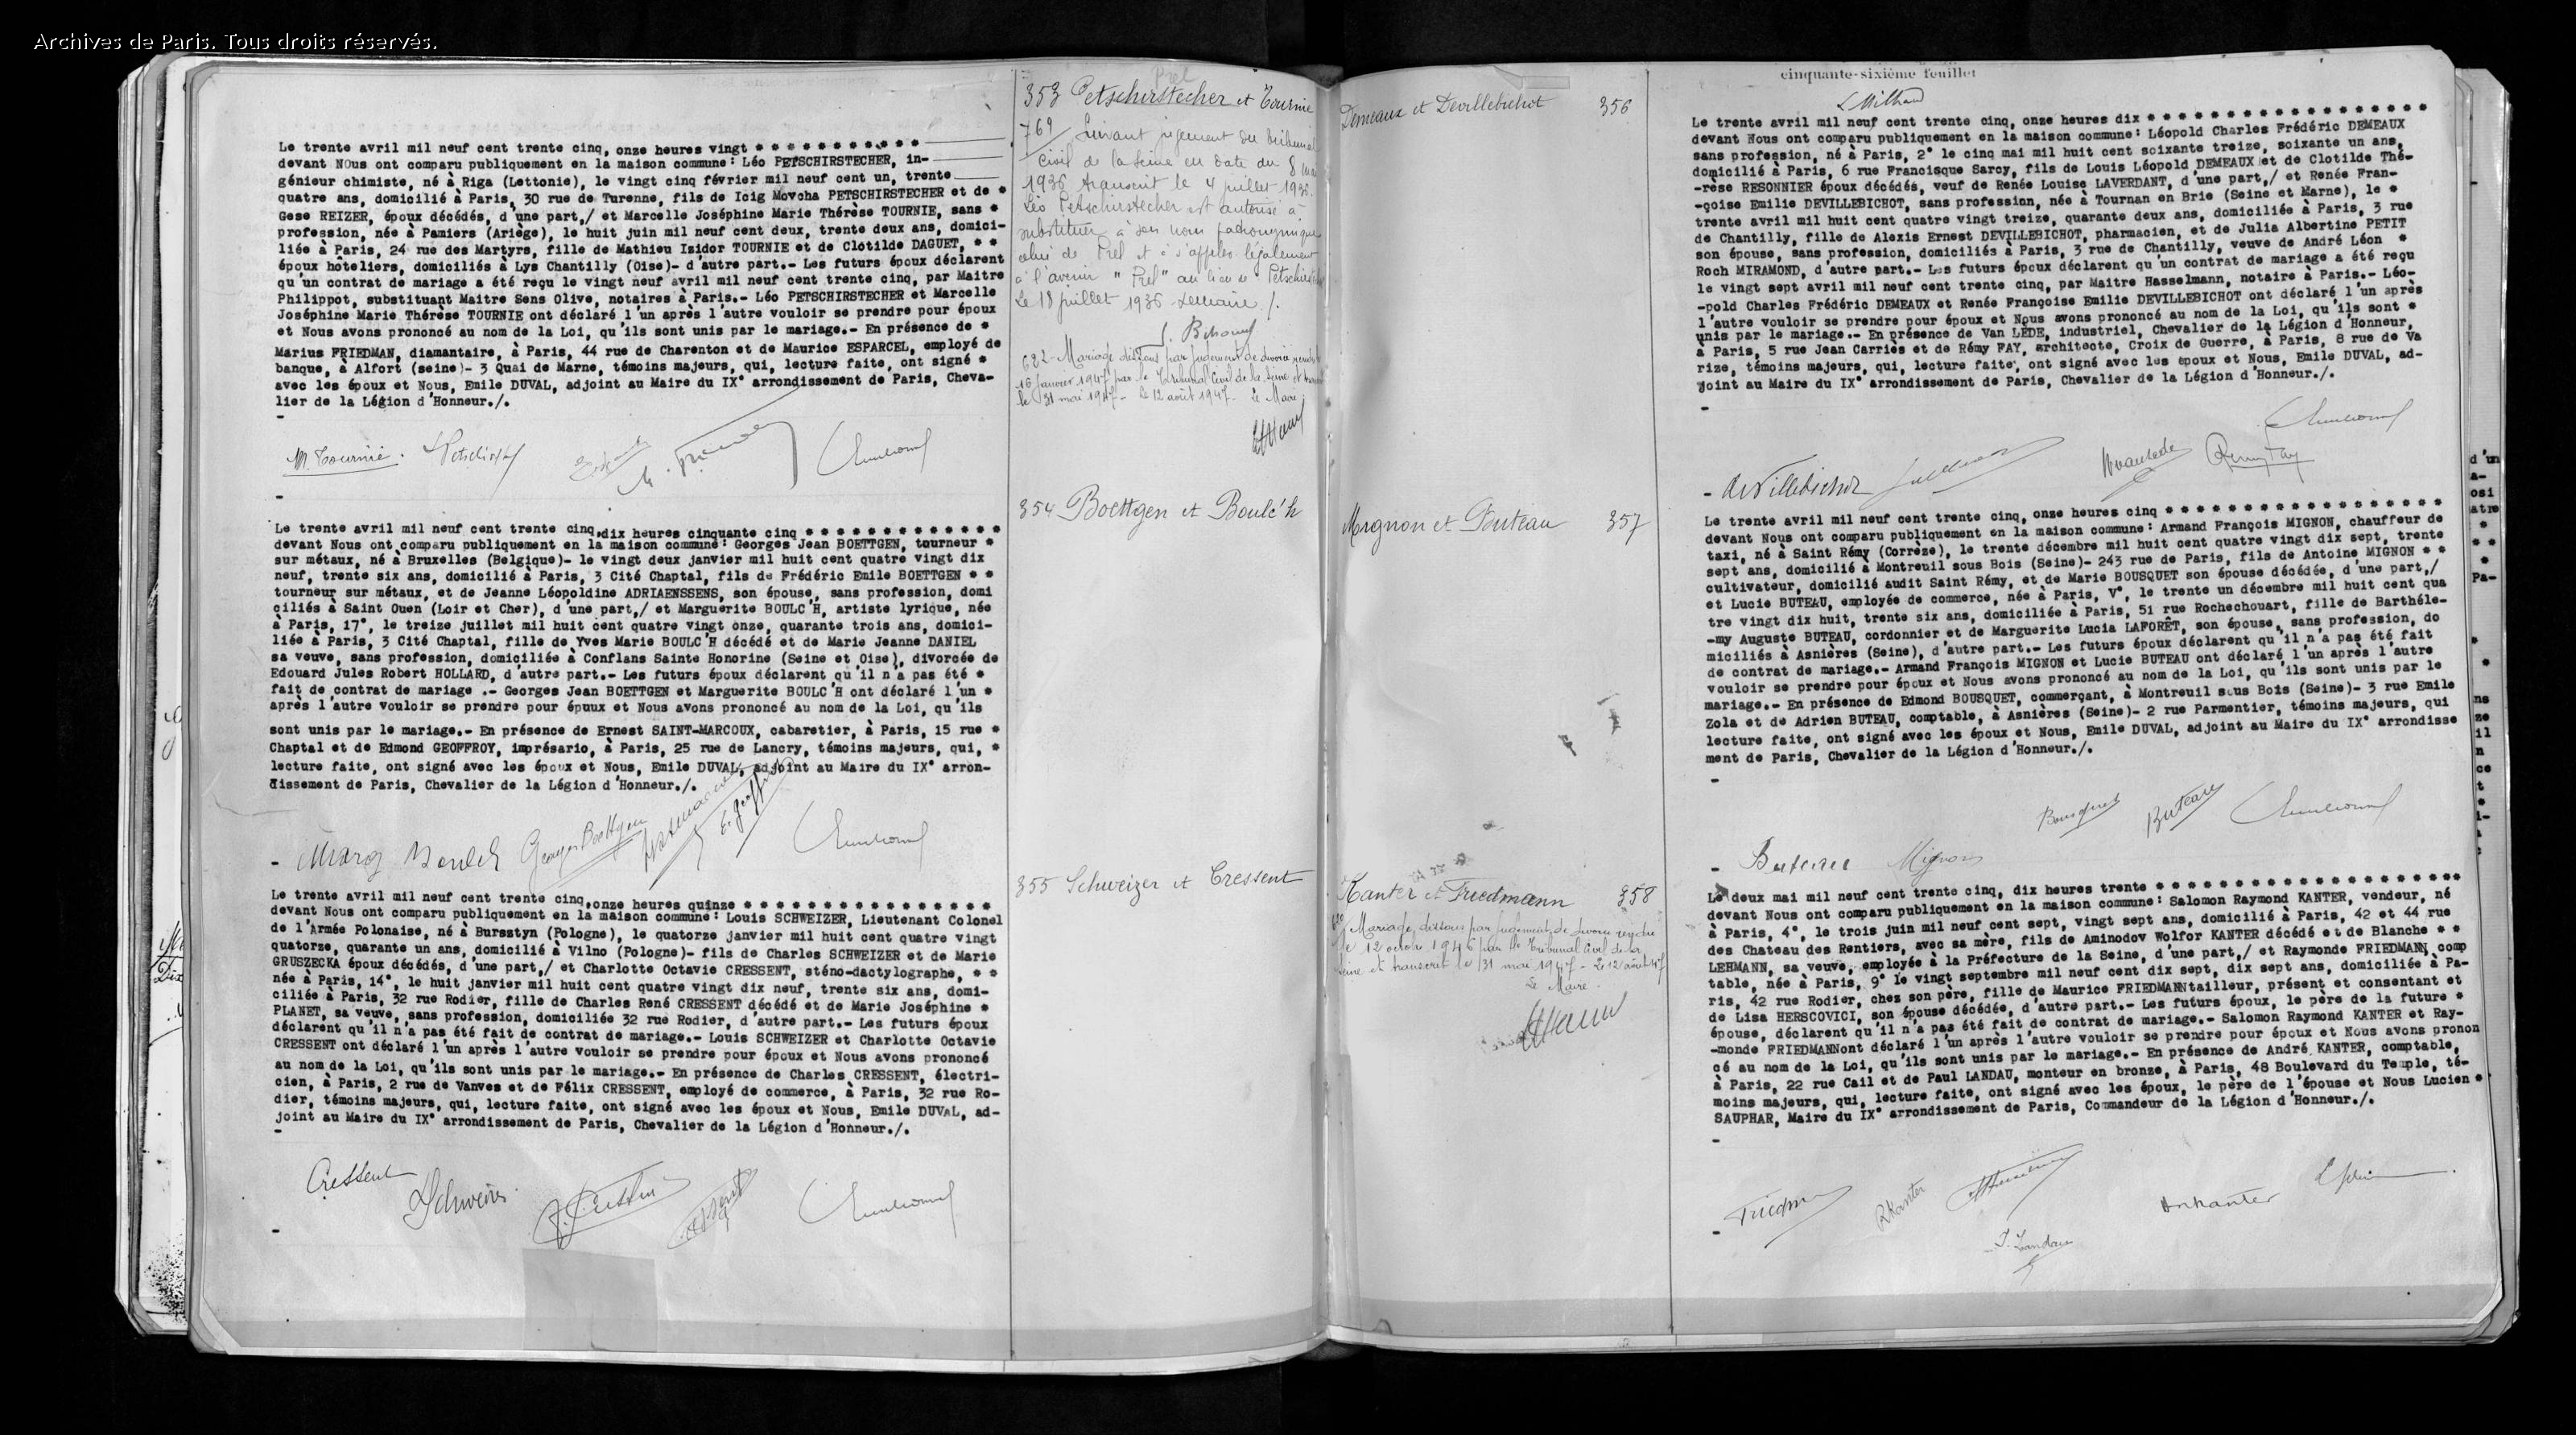 Archives de Paris. Tous droits réservés.
Le trente avril mil neuf cent trente cinq, onze heures vingt * * * * * * * * * * *
devant NOus ont comparu publiquement en la maison commune: Léo PETSCHIRSTECHER, in-
génieur chimiste, né à Riga (Lettonie), le vingt cinq février mil neuf cent un, trente
quatre ans, domicilié à Paris, 30 rue de Turenne, fils de Icig Movcha PETSCHIRSTECHER et de *
Gese REIZER, époux décédés, d'une part,/ et Marcelle Joséphine Marie Thérèse TOURNIE, sans *
profession, née à Pamiers (Ariège), le huit juin mil neuf cent deux, trente deux ans, domici-
liée à Paris, 24 rue des Martyrs, fille de Mathieu Isidor TOURNIE et de Clotilde DAGUET, * *
époux hôteliers, domiciliés à Lys Chantilly (Oise)- d'autre part.- Les futurs époux déclarent
qu'un contrat de mariage a été reçu le vingt neuf avril mil neuf cent trente cinq, par Maitre
Philippot, substituant Maitre Sens Olive, notaires à Paris.- Léo PETSCHIRSTECHER et Marcelle
Joséphine Marie Thérèse TOURNIE ont déclaré l'un après l'autre vouloir se prendre pour époux
et Nous avons prononcé au nom de la Loi, qu'ils sont unis par le mariage.- En présence de *
Marius FRIEDMAN, diamantaire, à Paris, 44 rue de Charenton et de Maurice ESPARCEL, employé de
banque, à Alfort (seine)- 3 Quai de Marne, témoins majeurs, qui, lecture faite, ont signé *
avec les époux et Nous, Emile DUVAL, adjoint au Maire du IX° arrondissement de Paris, Cheva-
lier de la Légion d'Honneur./.
M. Tournié.
Le trente avril mil neuf cent trente cinq,dix heures cinquante cinq * * * * * * * * * * * *
devant Nous ont comparu publiquement en la maison commune: Georges Jean BOETTGEN, tourneur *
sur métaux, né à Bruxelles (Belgique)- le vingt deux janvier mil huit cent quatre vingt dix
neuf, trente six ans, domicilié à Paris, 3 Cité Chaptal, fils de Frédéric Emile BOETTGEN * *
tourneur sur métaux, et de Jeanne Léopoldine ADRIAENSSENS, son épouse, sans profession, domi
ciliés à Saint Ouen (Loir et Cher), d'une part,/ et Marguerite BOULC'H, artiste lyrique, née
à Paris, 17°, le treize juillet mil huit cent quatre vingt onze, quarante trois ans, domici-
liée à Paris, 3 Cité Chaptal, fille de Yves Marie BOULC'H décédé et de Marie Jeanne DANIEL
sa veuve, sans profession, domiciliée à Conflans Sainte Honorine (Seine et Oise), divorcée de
Edouard Jules Robert HOLLARD, d'autre part.- Les futurs époux déclarent qu'il n'a pas été *
fait de contrat de mariage .- Georges Jean BOETTGEN et Marguerite BOULC'H ont déclaré l'un *
après l'autre vouloir se prendre pour époux et Nous avons prononcé au nom de la Loi, qu'ils
sont unis par le mariage.- En présence de Ernest SAINT-MARCOUX, cabaretier, à Paris, 15 rue *
Chaptal et de Edmond GEOFFROY, imprésario, à Paris, 25 rue de Lancry, témoins majeurs, qui, *
lecture faite, ont signé avec les époux et Nous, Emile DUVAL, adjoint au Maire du IX° arron-
dissement de Paris, Chevalier de la Légion d'Honneur./.
Georges Boettgen
Le trente avril mil neuf cent trente cinq,onze heures quinze * * * * * * * * * * * * * * *
devant Nous ont comparu publiquement en la maison commune: Louis SCHWEIZER, Lieutenant Colonel
de l'Armée Polonaise, né à Bursztyn (Pologne), le quatorze janvier mil huit cent quatre vingt
quatorze, quarante un ans, domicilié à Vilno (Pologne)- fils de Charles SCHWEIZER et de Marie
GRUSZECKA époux décédés, d'une part,/ et Charlotte Octavie CRESSENT, sténo-dactylographe, * *
née à Paris, 14°, le huit janvier mil huit cent quatre vingt dix neuf, trente six ans, domi-
ciliée à Paris, 32 rue Rodier, fille de Charles René CRESSENT décédé et de Marie Joséphine *
PLANET, sa veuve, sans profession, domiciliée 32 rue Rodier, d'autre part.- Les futurs époux
déclarent qu'il n'a pas été fait de contrat de mariage.- Louis SCHWEIZER et Charlotte Octavie
CRESSENT ont déclaré l'un après l'autre vouloir se prendre pour époux et Nous avons prononcé
au nom de la Loi, qu'ils sont unis par le mariage.- En présence de Charles CRESSENT, électri-
cien, à Paris, 2 rue de Vanves et de Félix CRESSENT, employé de commerce, à Paris, 32 rue Ro-
dier, témoins majeurs, qui, lecture faite, ont signé avec les époux et Nous, Emile DUVAL, ad-
joint au Maire du IX° arrondissement de Paris, Chevalier de la Légion d'Honneur./.
Cressent
Prel
353 Petschirstecher et Tournie
769 Suivant jugement du tribunal
civil de la Seine en date du 8 mai
1936 transcrit le 4 juillet 1936.
Léo Petschirstecher est autorisé à
substituer à son nom patronymique
celui de Prel et à s'appeler légalement
à l'avenir "Prel" au lieu de Petschirstecher
Le 18 juillet 1936
682- Mariage dissous par jugement de divorce rendu
16 janvier 1947 par le Tribunal Civil de la Seine et transcrit
le 31 mai 1947- Le 12 août 1947- Le Maire.
354 Boettgen et Boulc'h
355 Schweizer et Cressent
Demeaux et Devillebichot 356
Mignon et Buteau 357
Kanter et Friedmann 358
Mariage dissous par jugement de divorce rendu
le 12 octobre 1946 par le Tribunal Civil de la
Seine et transcrit le 31 mai 1947- Le 12 août 47
Le Maire.
cinquante-sixième feuillet
Le trente avril mil neuf cent trente cinq, onze heures dix * * * * * * * * * * * * * * * *
devant Nous ont comparu publiquement en la maison commune: Léopold Charles Frédéric DEMEAUX
sans profession, né à Paris, 2° le cinq mai mil huit cent soixante treize, soixante un ans,
domicilié à Paris, 6 rue Francisque Sarcy, fils de Louis Léopold DEMEAUX et de Clotilde Thé-
-rèse RESONNIER époux décédés, veuf de Renée Louise LAVERDANT, d'une part,/ et Renée Fran-
-çoise Emilie DEVILLEBICHOT, sans profession, née à Tournan en Brie (Seine et Marne), le *
trente avril mil huit cent quatre vingt treize, quarante deux ans, domiciliée à Paris, 3 rue
de Chantilly, fille de Alexis Ernest DEVILLEBICHOT, pharmacien, et de Julia Albertine PETIT
son épouse, sans profession, domiciliés à Paris, 3 rue de Chantilly, veuve de André Léon *
Roch MIRAMOND, d'autre part.- Les futurs époux déclarent qu'un contrat de mariage a été reçu
le vingt sept avril mil neuf cent trente cinq, par Maitre Hasselmann, notaire à Paris.- Léo-
-pold Charles Frédéric DEMEAUX et Renée Françoise Emilie DEVILLEBICHOT ont déclaré l'un après
l'autre vouloir se prendre pour époux et Nous avons prononcé au nom de la Loi, qu'ils sont *
unis par le mariage.- En présence de Van LEDE, industriel, Chevalier de la Légion d'Honneur,
à Paris, 5 rue Jean Carriès et de Rémy FAY, architecte, Croix de Guerre, à Paris, 8 rue de Va
rize, témoins majeurs, qui, lecture faite, ont signé avec les époux et Nous, Emile DUVAL, ad-
joint au Maire du IX° arrondissement de Paris, Chevalier de la Légion d'Honneur./.
deVillebichot
Le trente avril mil neuf cent trente cinq, onze heures cinq * * * * * * * * * * * * * * * *
devant Nous ont comparu publiquement en la maison commune: Armand François MIGNON, chauffeur de
taxi, né à Saint Rémy (Corrèze), le trente décembre mil huit cent quatre vingt dix sept, trente
sept ans, domicilié à Montreuil sous Bois (Seine)- 243 rue de Paris, fils de Antoine MIGNON * *
cultivateur, domicilié audit Saint Rémy, et de Marie BOUSQUET son épouse décédée, d'une part,/
et Lucie BUTEAU, employée de commerce, née à Paris, V°, le trente un décembre mil huit cent qua
tre vingt dix huit, trente six ans, domiciliée à Paris, 51 rue Rochechouart, fille de Barthéle-
-my Auguste BUTEAU, cordonnier et de Marguerite Lucia LAFORÊT, son épouse, sans profession, do
miciliés à Asnières (Seine), d'autre part.- Les futurs époux déclarent qu'il n'a pas été fait
de contrat de mariage.- Armand François MIGNON et Lucie BUTEAU ont déclaré l'un après l'autre
vouloir se prendre pour époux et Nous avons prononcé au nom de la Loi, qu'ils sont unis par le
mariage.- En présence de Edmond BOUSQUET, commerçant, à Montreuil sous Bois (Seine)- 3 rue Emile
Zola et de Adrien BUTEAU, comptable, à Asnières (Seine)- 2 rue Parmentier, témoins majeurs, qui
lecture faite, ont signé avec les époux et Nous, Emile DUVAL, adjoint au Maire du IX° arrondisse
ment de Paris, Chevalier de la Légion d'Honneur./.
Bousquet Buteau
Buteau Mignon
Le deux mai mil neuf cent trente cinq, dix heures trente * * * * * * * * * * * * * * * * * *
devant Nous ont comparu publiquement en la maison commune: Salomon Raymond KANTER, vendeur, né
à Paris, 4°, le trois juin mil neuf cent sept, vingt sept ans, domicilié à Paris, 42 et 44 rue
des Chateau des Rentiers, avec sa mère, fils de Aminodov Wolfor KANTER décédé et de Blanche * *
LEHMANN, sa veuve, employée à la Préfecture de la Seine, d'une part,/ et Raymonde FRIEDMANN comp
table, née à Paris, 9° le vingt septembre mil neuf cent dix sept, dix sept ans, domiciliée à Pa-
ris, 42 rue Rodier, chez son père, fille de Maurice FRIEDMANNtailleur, présent et consentant et
de Lisa HERSCOVICI, son épouse décédée, d'autre part.- Les futurs époux, le père de la future *
épouse, déclarent qu'il n'a pas été fait de contrat de mariage.- Salomon Raymond KANTER et Ray-
-monde FRIEDMANNont déclaré l'un après l'autre vouloir se prendre pour époux et Nous avons pronon
cé au nom de la Loi, qu'ils sont unis par le mariage.- En présence de André KANTER, comptable,
à Paris, 22 rue Cail et de Paul LANDAU, monteur en bronze, à Paris, 48 Boulevard du Temple, té-
moins majeurs, qui, lecture faite, ont signé avec les époux, le père de l'épouse et Nous Lucien *
SAUPHAR, Maire du IX° arrondissement de Paris, Commandeur de la Légion d'Honneur./.
RKanter